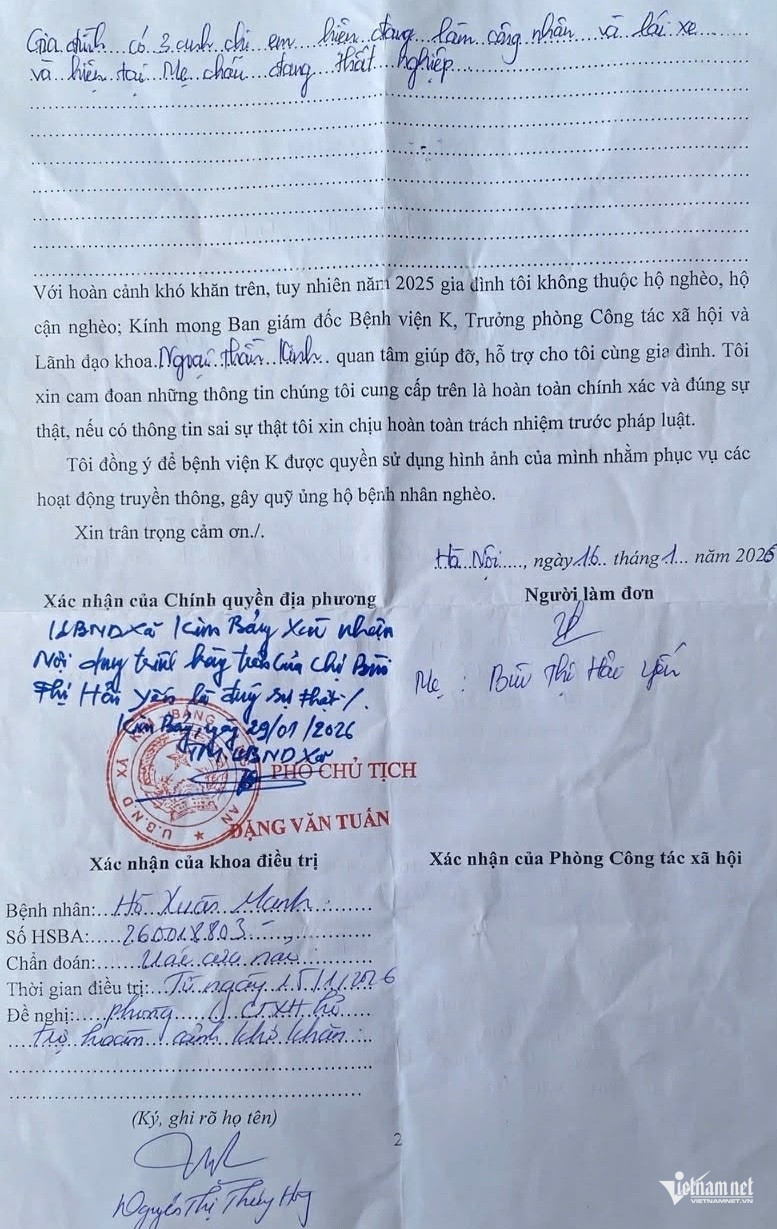 Gia đình có 3 anh chị em hiện đang làm công nhân và lái xe
và hiện tại Mẹ cháu đang thất nghiệp
Với hoàn cảnh khó khăn trên, tuy nhiên năm 2025 gia đình tôi không thuộc hộ nghèo, hộ
cận nghèo; Kính mong Ban giám đốc Bệnh viện K, Trưởng phòng Công tác xã hội và
Lãnh đạo khoa Ngoại thần kinh quan tâm giúp đỡ, hỗ trợ cho tôi cùng gia đình. Tôi
xin cam đoan những thông tin chúng tôi cung cấp trên là hoàn toàn chính xác và đúng sự
thật, nếu có thông tin sai sự thật tôi xin chịu hoàn toàn trách nhiệm trước pháp luật.
Tôi đồng ý để bệnh viện K được quyền sử dụng hình ảnh của mình nhằm phục vụ các
hoạt động truyền thông, gây quỹ ủng hộ bệnh nhân nghèo.
Xin trân trọng cảm ơn./.
Hà Nội, ngày 16 tháng 1 năm 2026
Xác nhận của Chính quyền địa phương
Người làm đơn
UBND Xã Kim Bảng Xác nhận
Nội dung trình bày trên của chị Bùi
Thị Hải Yến là đúng sự thật./.
Kim Bảng, ngày 29/01/2026
TM UBND Xã
PHÓ CHỦ TỊCH
ĐẶNG VĂN TUẤN
Mẹ : Bùi Thị Hải Yến
Xác nhận của khoa điều trị
Xác nhận của Phòng Công tác xã hội
Bệnh nhân: Hồ Xuân Mạnh
Số HSBA: 260018803
Chẩn đoán: U ác của não
Thời gian điều trị: Từ ngày 15/1/2026
Đề nghị: phòng CTXH hỗ
trợ hoàn cảnh khó khăn
(Ký, ghi rõ họ tên)
Nguyễn Thị Thúy
2
Vietnamnet
VIETNAMNET.VN